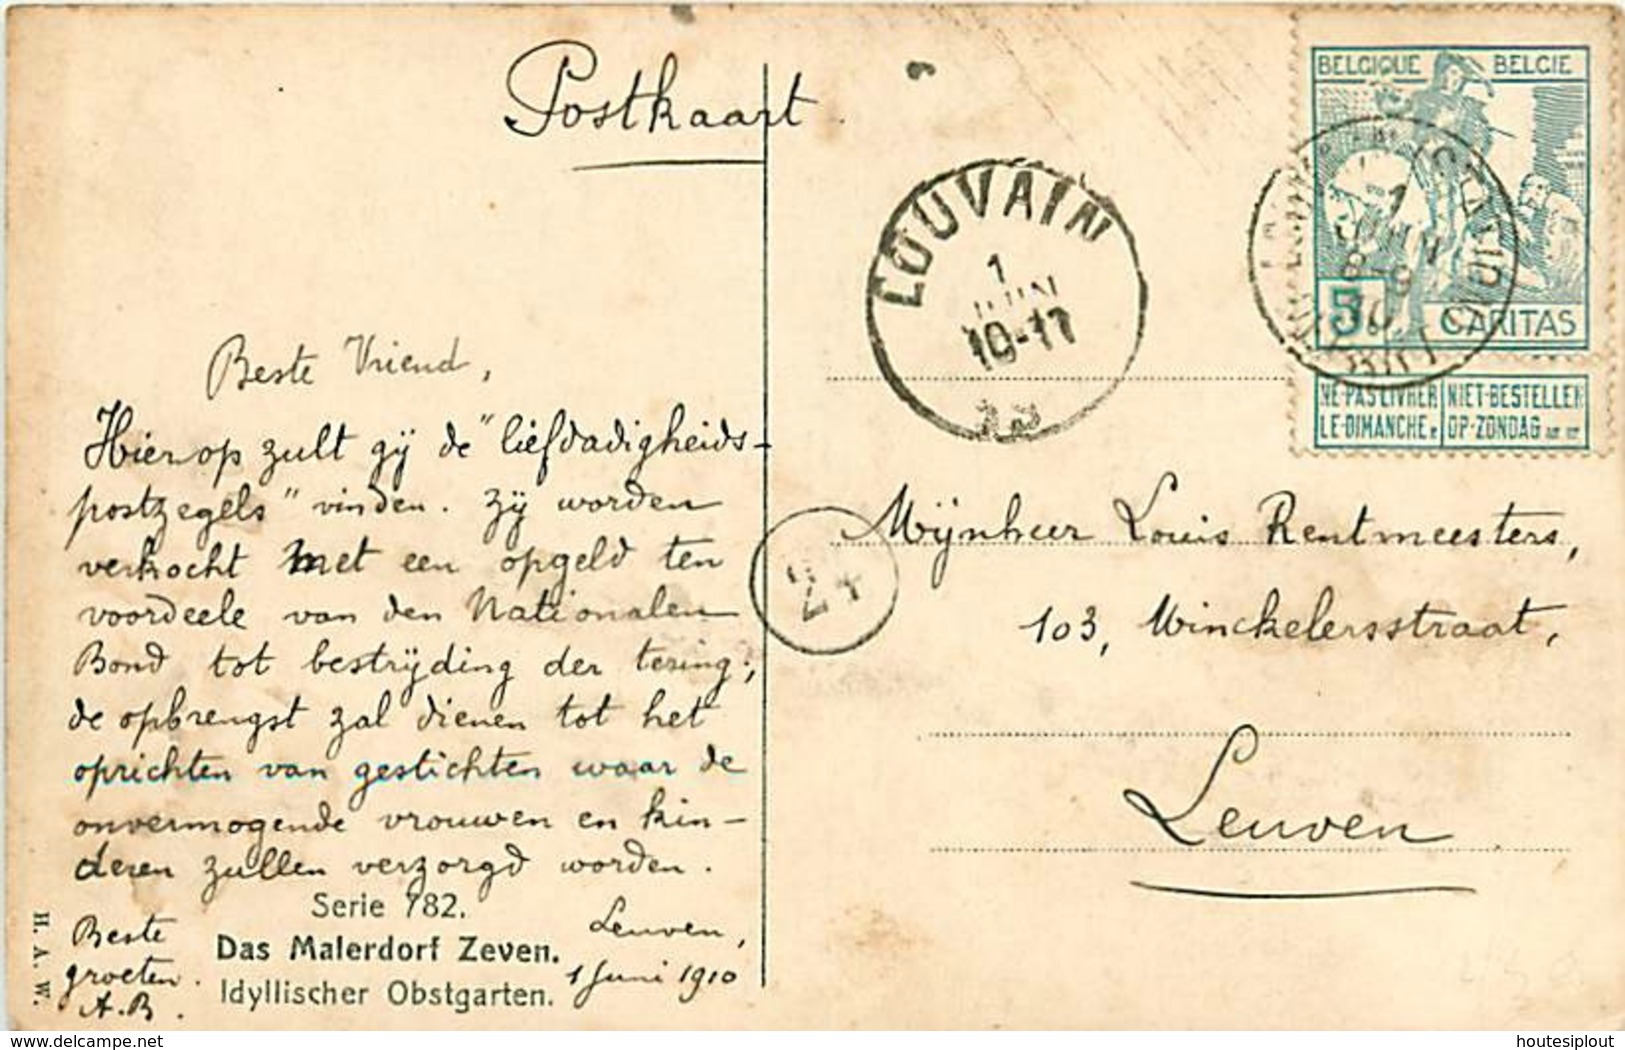 Postkaart
BELGIQUE BELGIE
5
CARITAS
NE-PAS LIVRER NIET-BESTELLEN
LE-DIMANCHE OP-ZONDAG
LOUVAIN
1
JUIN
10-11
LOUVAIN (STATION)
1
JUIN
8-9
10
LEUVEN
24
Beste Vriend,
Hierop zult gÿ de "liefdadigheids-
postzegels" vinden. Zÿ worden
verkocht met een opgeld ten
voordeele van den Nationalen
Bond tot bestrÿding der tering;
de opbrengst zal dienen tot het
oprichten van gestichten waar de
onvermogende vrouwen en kin-
deren zullen verzorgd worden.
Leuven,
1 Juni 1910
Beste
groeten.
A.B.
Serie 782.
Das Malerdorf Zeven.
Idyllischer Obstgarten.
H. A. W.
Mÿnheer Louis Rentmeesters,
103, Winckelersstraat,
Leuven
delcampe.net
houtesiplout